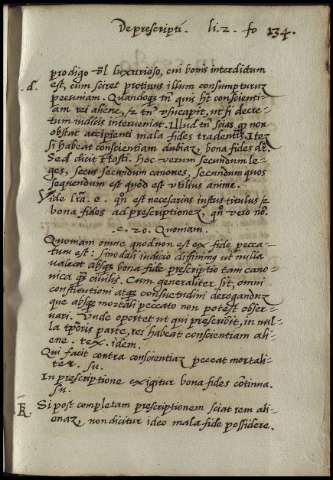 De prescripti. li. 2. fo 134.
prodigo vel luxurioso, cui bonis interdictum
d. est, cum sciret protinus illum consumpturum
pecuniam. Quandoque tn quis ht conscienti-
am rei aliene, et tn usucapit, ut si decre-
tum iudicis interveniat. Illud tn scias qd non
obstat accipienti mala fides tradentis. Item
Si habeat conscientiam dubiam, bona fides dr.
Sed dicit Hosti. hoc verum secundum le-
ges, secus secundum canones, secundum quos
sequendum est quod est utilius anime.
Vide lra. e. qn est necessarius iustus titulus se
bona fides ad prescriptionem, qn vero no.
c. 20. Quoniam.
Quoniam omne quod non est ex fide, pecca-
tum est: sinodali iudicio diffinimus ut nulla
valeat absque bona fide prescriptio tam cano-
nica quam civilis. Cum generaliter sit, omni
constitutioni atque consuetudini derogandum
que absque mortali peccato non potest obser-
vari. Unde oportet ut qui prescribit, in nul-
la tporis parte, rei habeat conscientiam ali-
ene. tex. idem.
Qui facit contra conscientiam peccat mortali-
ter. su.
In prescriptione exigitur bona fides cotinua.
su.
Si post completam prescriptionem sciat rem ali-
enam, non dicitur ideo mala fide possidere.